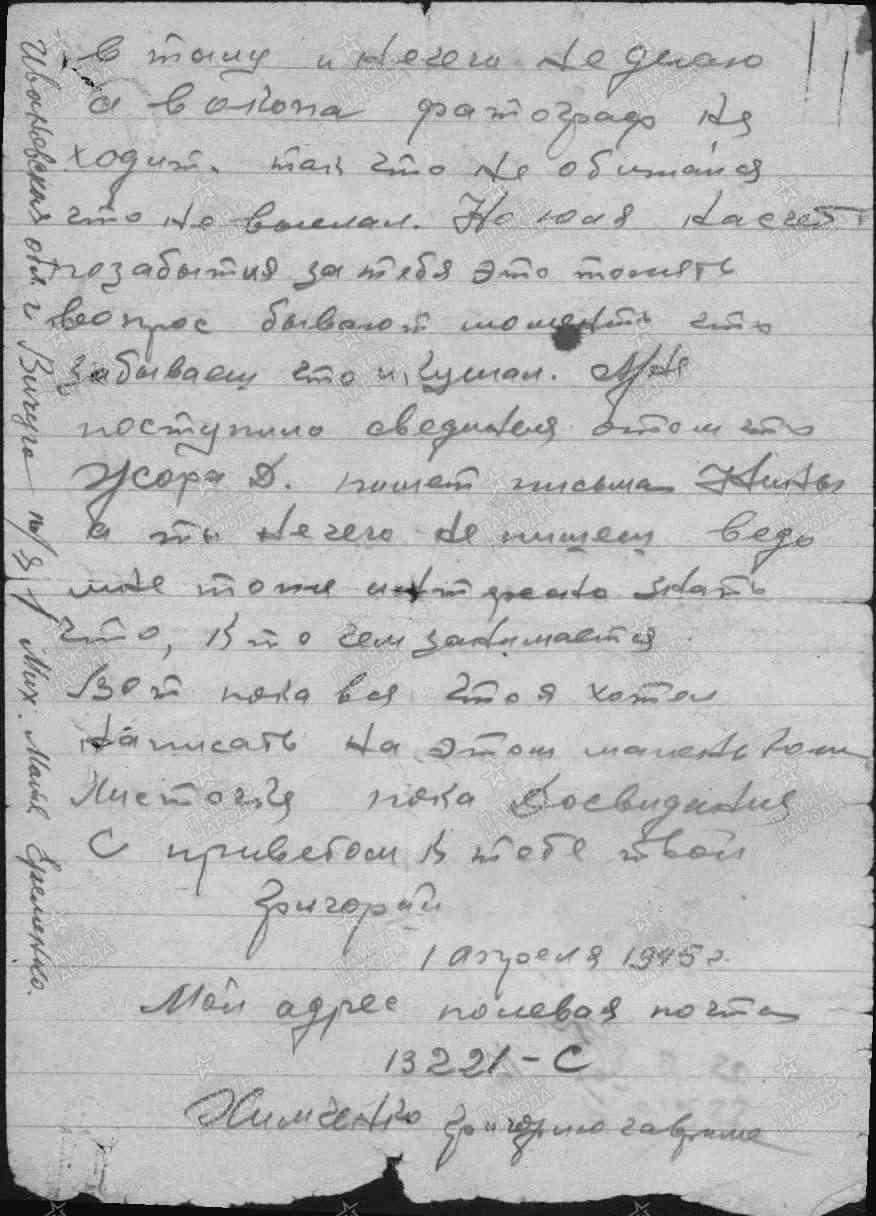 в тылу и нечего не делаю
а в окопа фатограф не
ходит. так что не обижайся
что не выслал. Но юля насчет
позабытия за тебя это томять
вопрос бывают моменть что
забываеш что и кушал. Мне
поступило свединия отом что
Жора Д. пишет письма Нины
а ты нечего не пишеш ведь
мне тоже интересно знать
что, кто чем занимается
Вот пока вся что я хотел
написать на этом маленьком
листочке пока Досвидания
С приветом к тебе твой
Григорий
1 апреля 1945 г.
Мой адрес полевая почта
13221-С
Химченко Григорию
Ивановская обл. г Вичуга п/я 1 Мих. Малая Еременко.
ПАМЯТЬ НАРОДА